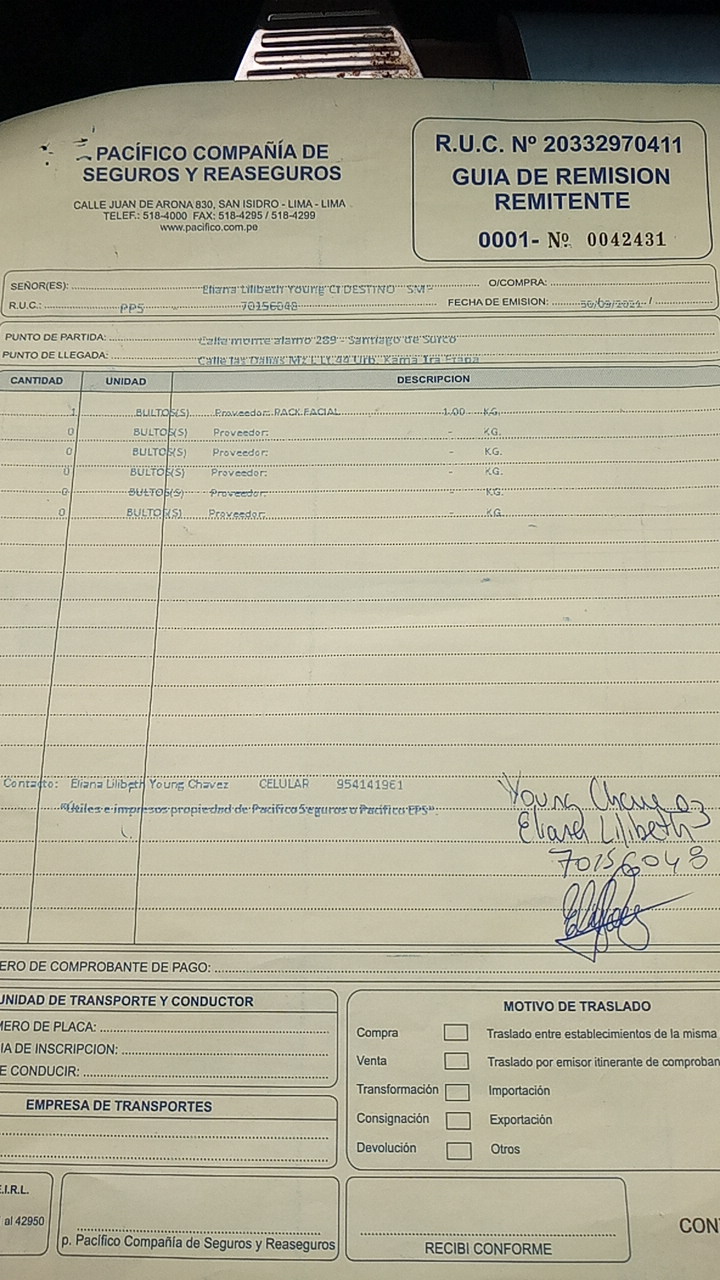 PACÍFICO COMPAÑÍA DE
SEGUROS Y REASEGUROS
CALLE JUAN DE ARONA 830, SAN ISIDRO - LIMA - LIMA
TELEF.: 518-4000 FAX: 518-4295 / 518-4299
www.pacifico.com.pe
R.U.C. Nº 20332970411
GUIA DE REMISION
REMITENTE
0001- Nº 0042431
SEÑOR(ES): Eliana Lilibeth Young Cl DESTINO SMP
O/COMPRA:
R.U.C.: PPS 70156048
FECHA DE EMISION: 30/09/2021 /
PUNTO DE PARTIDA: Calle monte alamo 289 - Santiago de Surco
PUNTO DE LLEGADA: Calle las Dalias Mz L Lt 44 Urb. Kama 1ra Etapa
CANTIDAD UNIDAD DESCRIPCION
1 BULTOS(S) Proveedor: PACK FACIAL 1.00 KG.
0 BULTO(S) Proveedor: - KG.
0 BULTO(S) Proveedor: - KG.
0 BULTO(S) Proveedor: - KG.
0 BULTO(S) Proveedor: - KG.
0 BULTO(S) Proveedor: - KG.
Contacto: Eliana Lilibeth Young Chavez CELULAR 954141961
"Útiles e impresos propiedad de Pacifico Seguros o Pacifico EPS".
Young Chavez
Eliana Lilibeth
70156048
ERO DE COMPROBANTE DE PAGO:
UNIDAD DE TRANSPORTE Y CONDUCTOR
MERO DE PLACA:
IA DE INSCRIPCION:
E CONDUCIR:
EMPRESA DE TRANSPORTES
MOTIVO DE TRASLADO
Compra Traslado entre establecimientos de la misma
Venta Traslado por emisor itinerante de comproban
Transformación Importación
Consignación Exportación
Devolución Otros
E.I.R.L.
al 42950
p. Pacífico Compañía de Seguros y Reaseguros
RECIBI CONFORME
CON